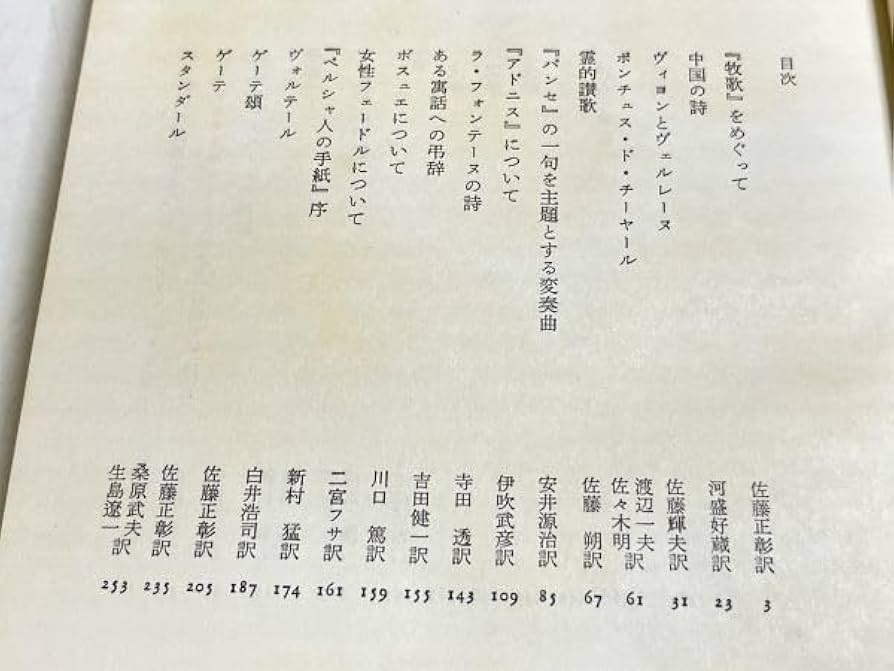 目次
『牧歌』をめぐって 佐藤正彰訳 3
中国の詩 河盛好蔵訳 23
ヴィヨンとヴェルレーヌ 佐藤輝夫訳 31
ポンチュス・ド・チーヤール 渡辺一夫 佐々木明訳 61
霊的讃歌 佐藤 朔訳 67
『パンセ』の一句を主題とする変奏曲 安井源治訳 85
『アドニス』について 伊吹武彦訳 109
ラ・フォンテーヌの詩 寺田 透訳 143
ある寓話への弔辞 吉田健一訳 155
ボスュエについて 川口 篤訳 159
女性フェードルについて 二宮フサ訳 161
『ペルシャ人の手紙』序 新村 猛訳 174
ヴォルテール 白井浩司訳 187
ゲーテ頌 佐藤正彰訳 205
ゲーテ 佐藤正彰訳 235
スタンダール 桑原武夫 生島遼一訳 253